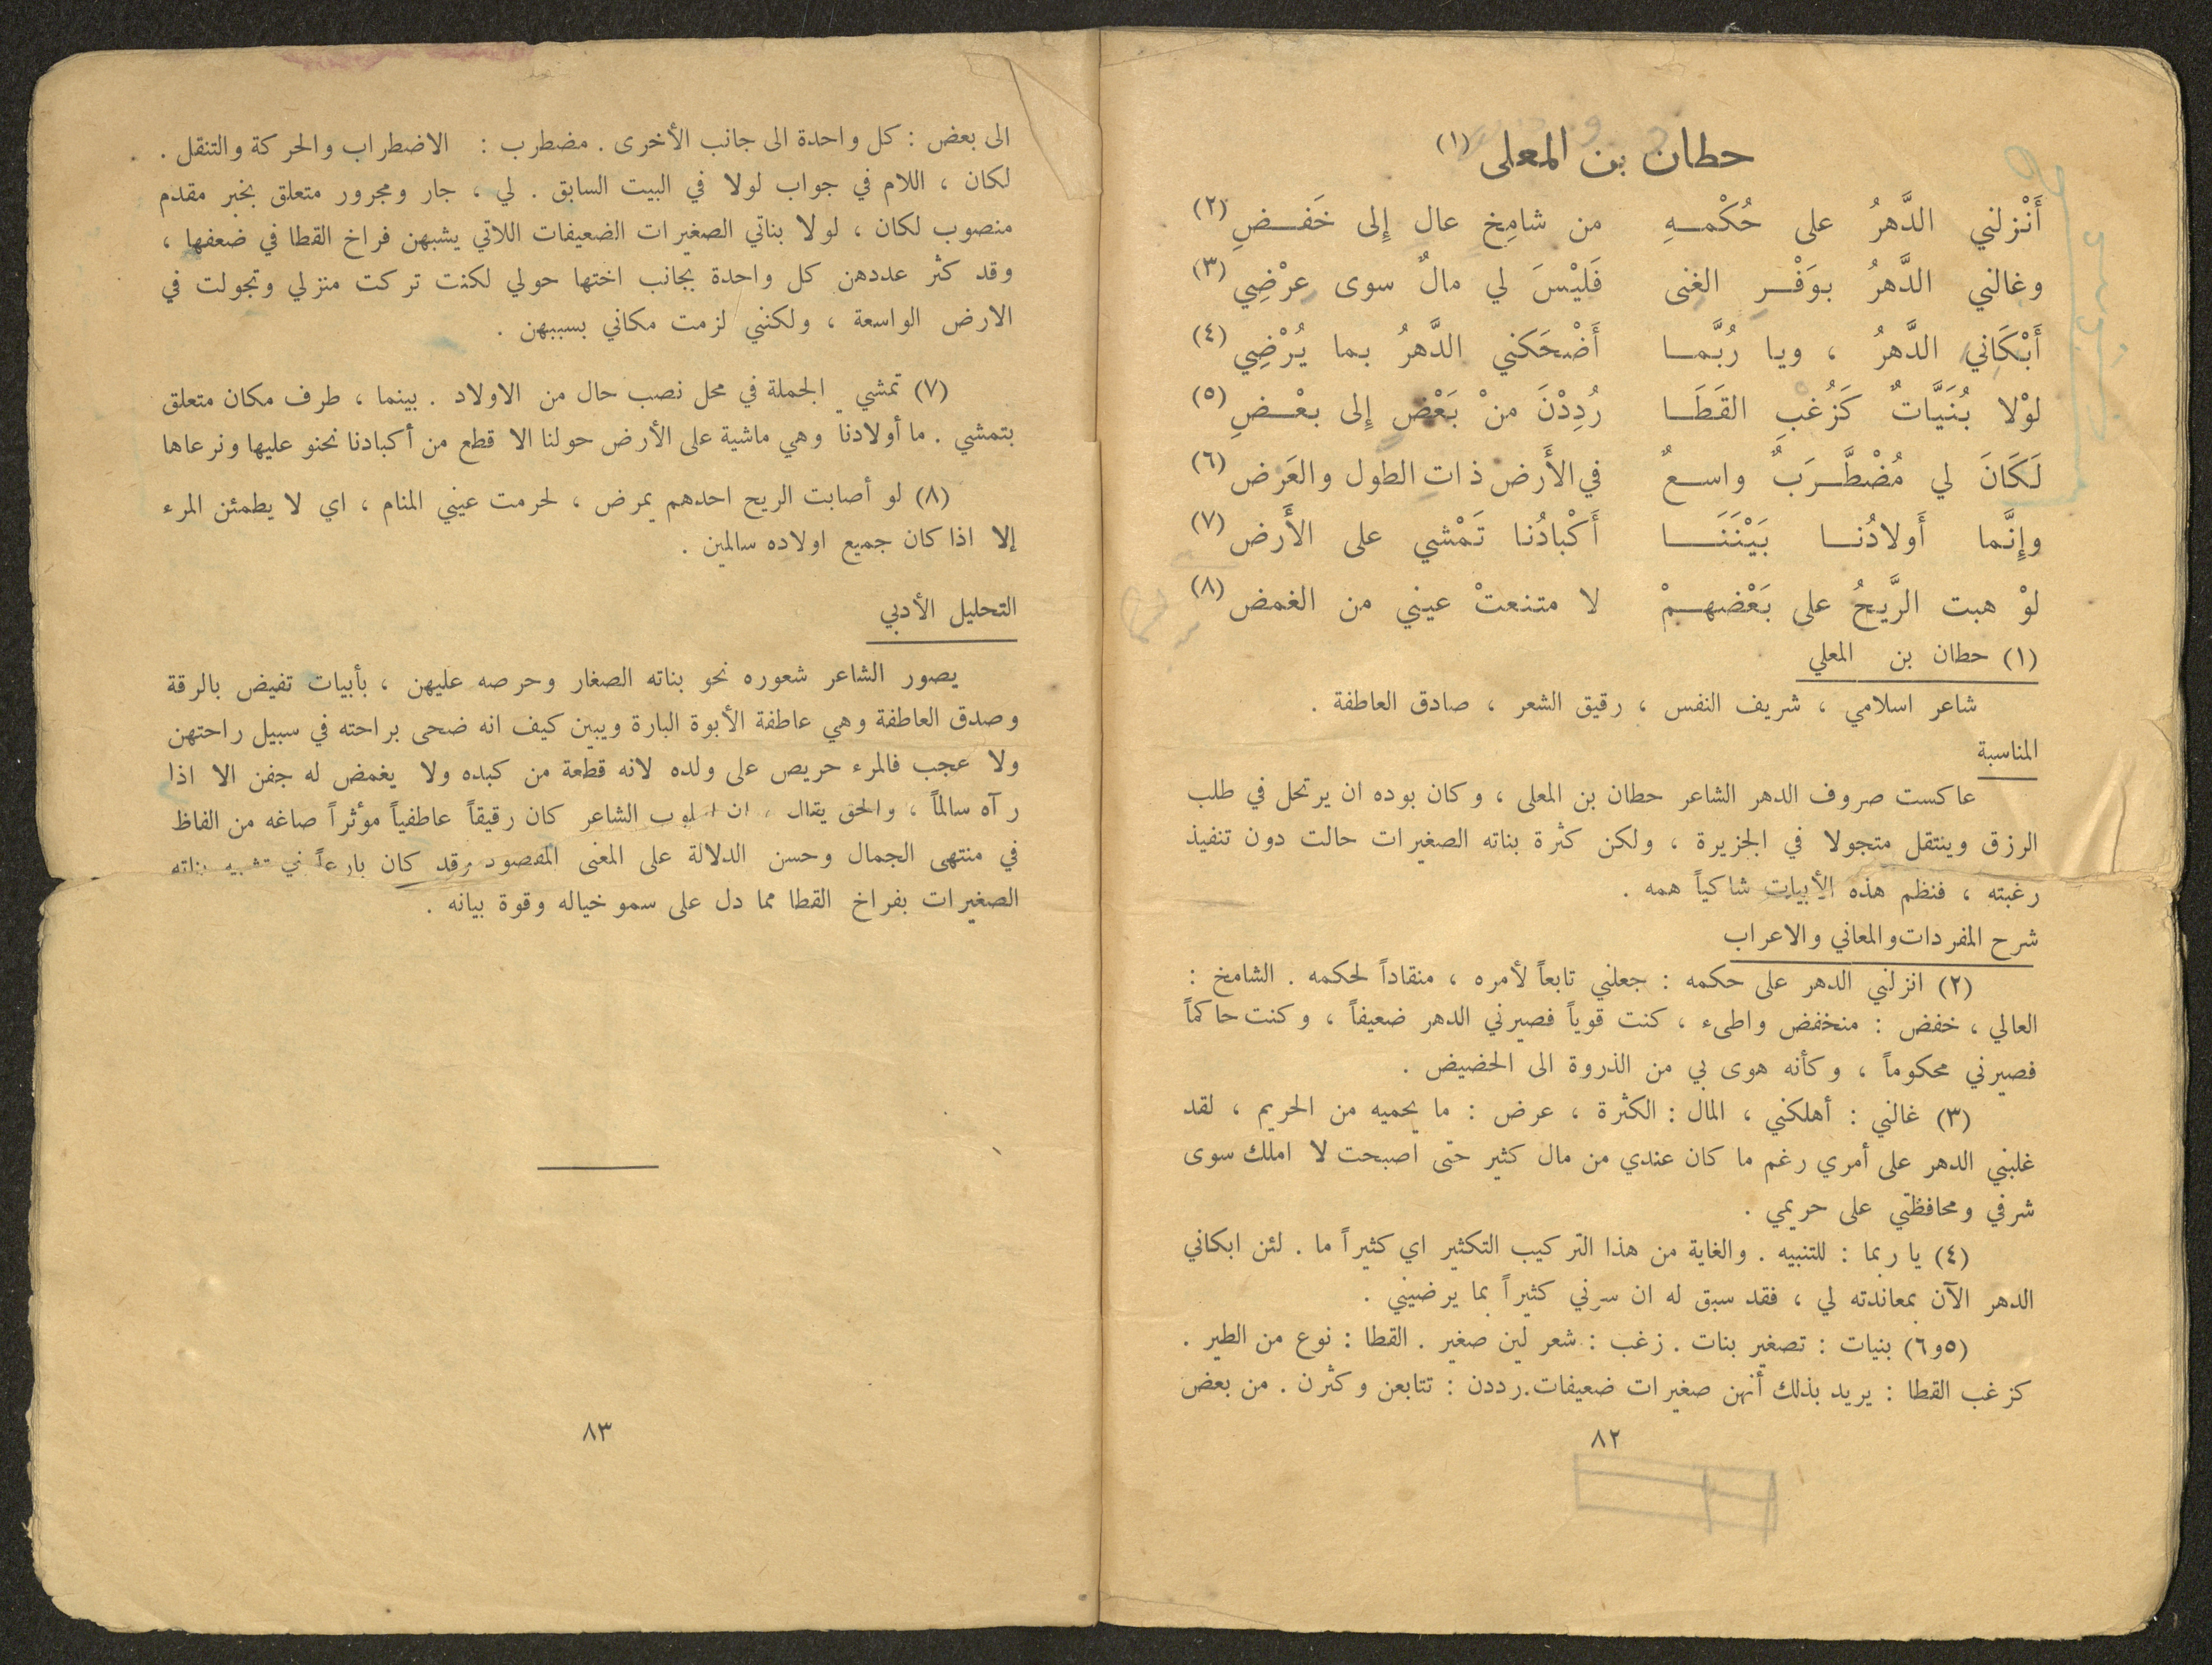 حطان بن المعلى (١)
أَنْزلني الدَّهرُ على حُكْمهِ من شامِخ عال إِلى خَفضِ (٢)
وغالني الدَّهرُ بوَفْرِ الغنى فَلَيْسَ لي مالٌ سوى عرْضِي (٣)
أَبْكَاني الدَّهرُ ، ويا رُبَّما أَضْحَكني الدَّهرُ بما يُرْضِي (٤)
لوْلا بُنَيَّاتٌ كَزُغبِ القَطَا رُدِدْنَ منْ بَعْضٍ إِلى بعْضِ (٥)
لَكَانَ لي مُضْطَّرَبٌ واسعٌ في الأَرض ذات الطول والعَرْض (٦)
وإِنَّما أَولادُنا بَيْنَنَا أَكْبادُنا تَمْشي على الأَرض (٧)
لوْ هبت الرَّيحُ على بَعْضهمْ لا متنعتْ عيني من الغمض (٨)
(١) حطان بن المعلي
شاعر اسلامي ، شريف النفس ، رقيق الشعر ، صادق العاطفة .
المناسبة
عاكست صروف الدهر الشاعر حطان بن المعلى ، وكان بوده ان يرتحل في طلب
الرزق وينتقل متجولا في الجزيرة ، ولكن كثرة بناته الصغيرات حالت دون تنفيذ
رغبته ، فنظم هذه الأبيات شاكياً همه .
شرح المفردات والمعاني والاعراب
(٢) انزلني الدهر على حكمه : جعلني تابعاً لأمره ، منقاداً لحكمه . الشامخ :
العالي ، خفض : منخفض واطىء ، كنت قوياً فصيرني الدهر ضعيفاً ، وكنت حاكماً
فصيرني محكوماً ، وكأنه هوى بي من الذروة الى الحضيض .
(٣) غالني : أهلكني ، المال : الكثرة ، عرض : ما يحميه من الحريم ، لقد
غلبني الدهر على أمري رغم ما كان عندي من مال كثير حتى اصبحت لا املك سوى
شرفي ومحافظتي على حريمي .
(٤) يا ربما : للتنبيه . والغاية من هذا التركيب التكثير اي كثيراً ما . لئن ابكاني
الدهر الآن بمعاندته لي ، فقد سبق له ان سرني كثيراً بما يرضيني .
(٥و٦) بنيات : تصغير بنات . زغب : شعر لين صغير . القطا : نوع من الطير .
كزغب القطا : يريد بذلك أنهن صغيرات ضعيفات. رددن : تتابعن وكثرن . من بعض
٨٢
الى بعض : كل واحدة الى جانب الأخرى . مضطرب : الاضطراب والحركة والتنقل .
لكان ، اللام في جواب لولا في البيت السابق . لي ، جار ومجرور متعلق بخبر مقدم
منصوب لكان ، لولا بناتي الصغيرات الضعيفات اللاتي يشبهن فراخ القطا في ضعفها ،
وقد كثر عددهن كل واحدة بجانب اختها حولي لكنت تركت منزلي وتجولت في
الارض الواسعة ، ولكنني لزمت مكاني بسببهن .
(٧) تمشي الجملة في محل نصب حال من الاولاد . بينما ، طرف مكان متعلق
بتمشي . ما أولادنا وهي ماشية على الأرض حولنا الا قطع من أكبادنا نحنو عليها ونرعاها
(٨) لو أصابت الريح احدهم بمرض ، لحرمت عيني المنام ، اي لا يطمئن المرء
إلا اذا كان جميع اولاده سالمين .
التحليل الأدبي
يصور الشاعر شعوره نحو بناته الصغار وحرصه عليهن ، بأبيات تفيض بالرقة
وصدق العاطفة وهي عاطفة الأبوة البارة ويبين كيف انه ضحى براحته في سبيل راحتهن
ولا عجب فالمرء حريص على ولده لانه قطعة من كبده ولا يغمض له جفن الا اذا
رآه سالماً ، والحق يقال ، ان اسلوب الشاعر كان رقيقاً عاطفياً مؤثراً صاغه من الفاظ
في منتهى الجمال وحسن الدلالة على المعنى المقصود وقد كان بارعاً في تشبيه بناته
الصغيرات بفراخ القطا مما دل على سمو خياله وقوة بيانه .
٨٣